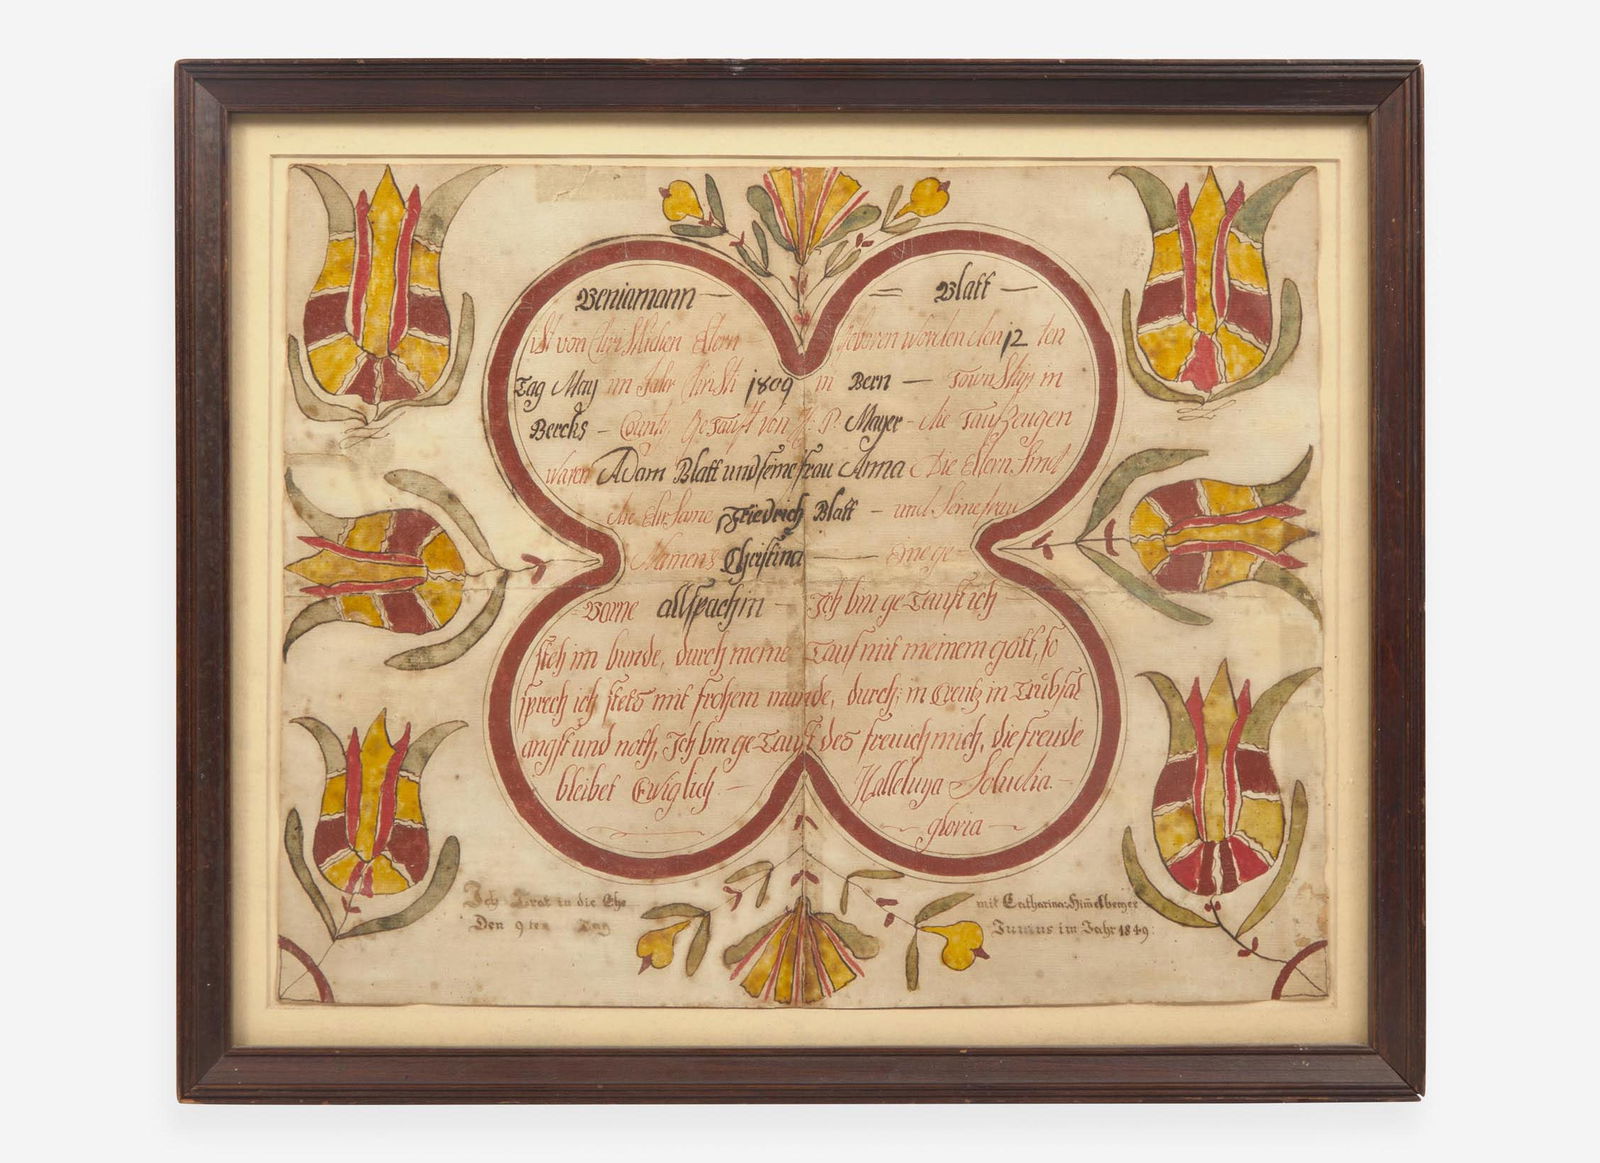 Beniamann — Blatt —
ist von Christlichen Eltern geboren worden den 12 ten
Tag May im Jahr Christi 1809 in Bern — Township in
Bercks — County Getauft von H. P. Mayer - die Taufzeugen
waren Adam Blatt und seine frau Anna Die Eltern sind
die Ehrsame Friedrich Blatt — und seine frau
Namens Christina — eine ge-
borne allspachin — Ich bin getauft ich
steh im bunde, durch meine Tauf mit meinem gott, so
sprech ich stets mit frohem munde, durch; in Creutz in Trübsal
angst und noth, Ich bin getauft des freu ich mich, die freude
bleibet Ewiglich. — Halleluya —
gloria —
Ich Trat in die Ehe mit Catharina Himelberger
Den 9 ten Tag Junius im Jahr 1849.